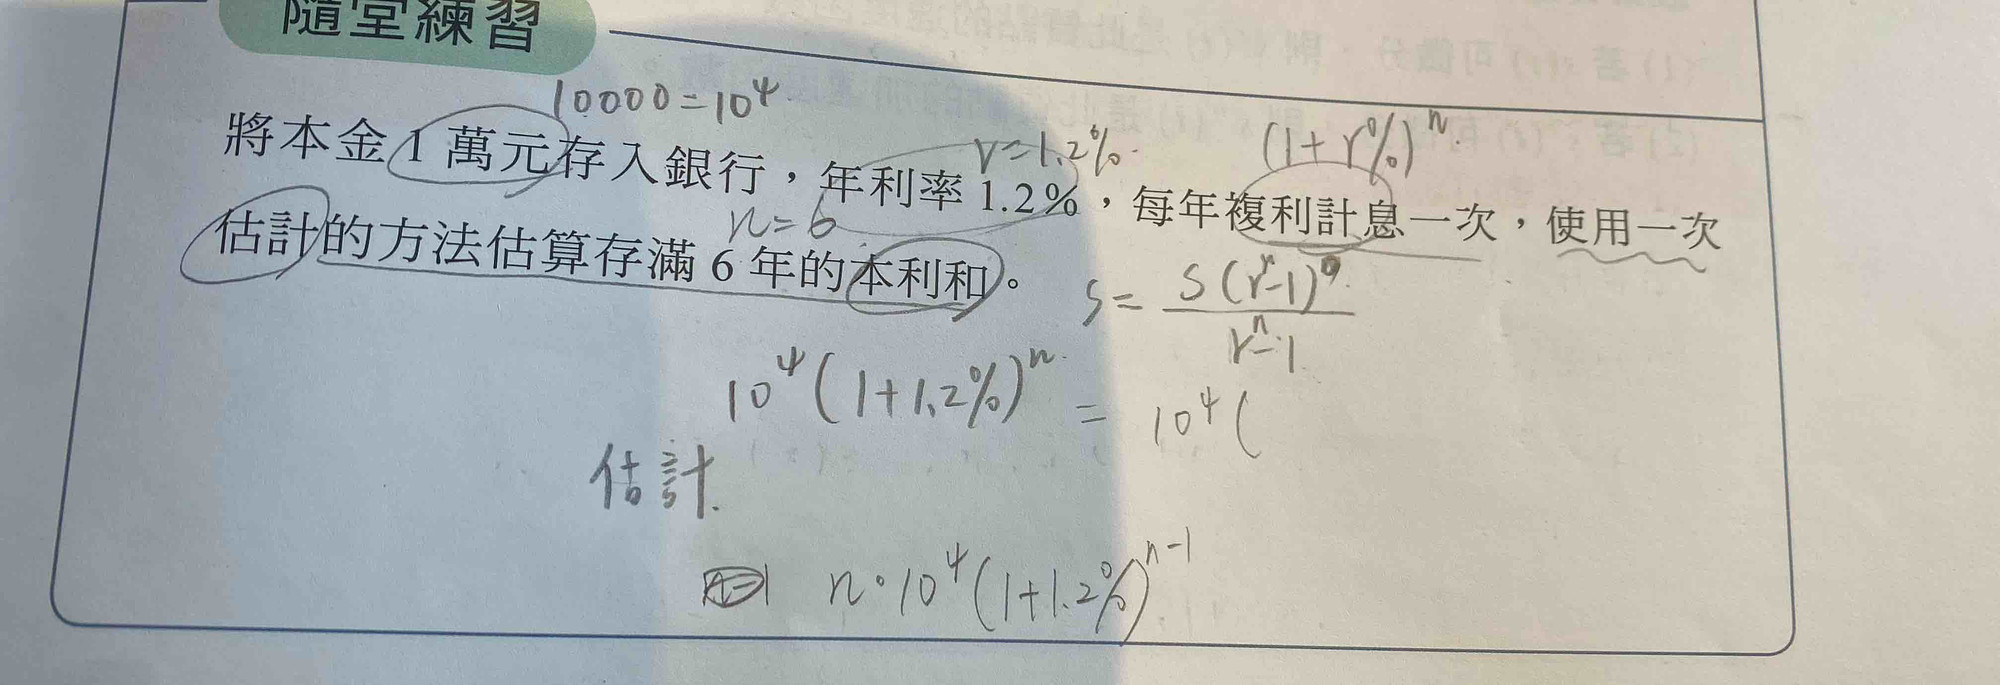 隨堂練習
10000=10⁴
r=1.2%
(1+r%)ⁿ
將本金1萬元存入銀行，年利率1.2%，每年複利計息一次，使用一次
n=6
估計的方法估算存滿6年的本利和。
S= S(rⁿ-1) / rⁿ-1
10⁴(1+1.2%)ⁿ = 10⁴(
估計.
n·10⁴(1+1.2%)ⁿ⁻¹